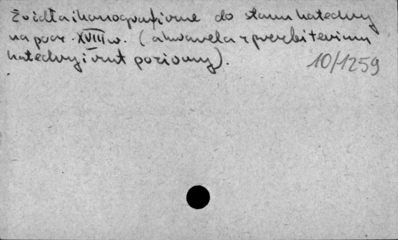 Źródła ikonograficzne do stanu katedry
na pocz. XVIII w. (akwarela z prezbiterium
katedry i rzut poziomy).
10/1259